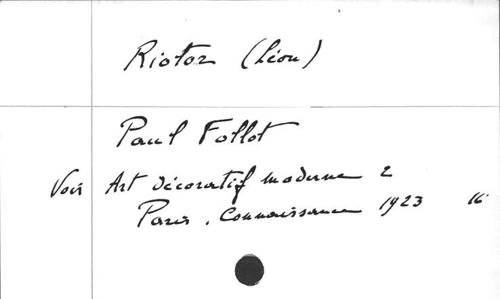 Riotor (Léon)
Paul Follot
Voir Art Décoratif moderne 2
Paris, Connaissance 1923 16